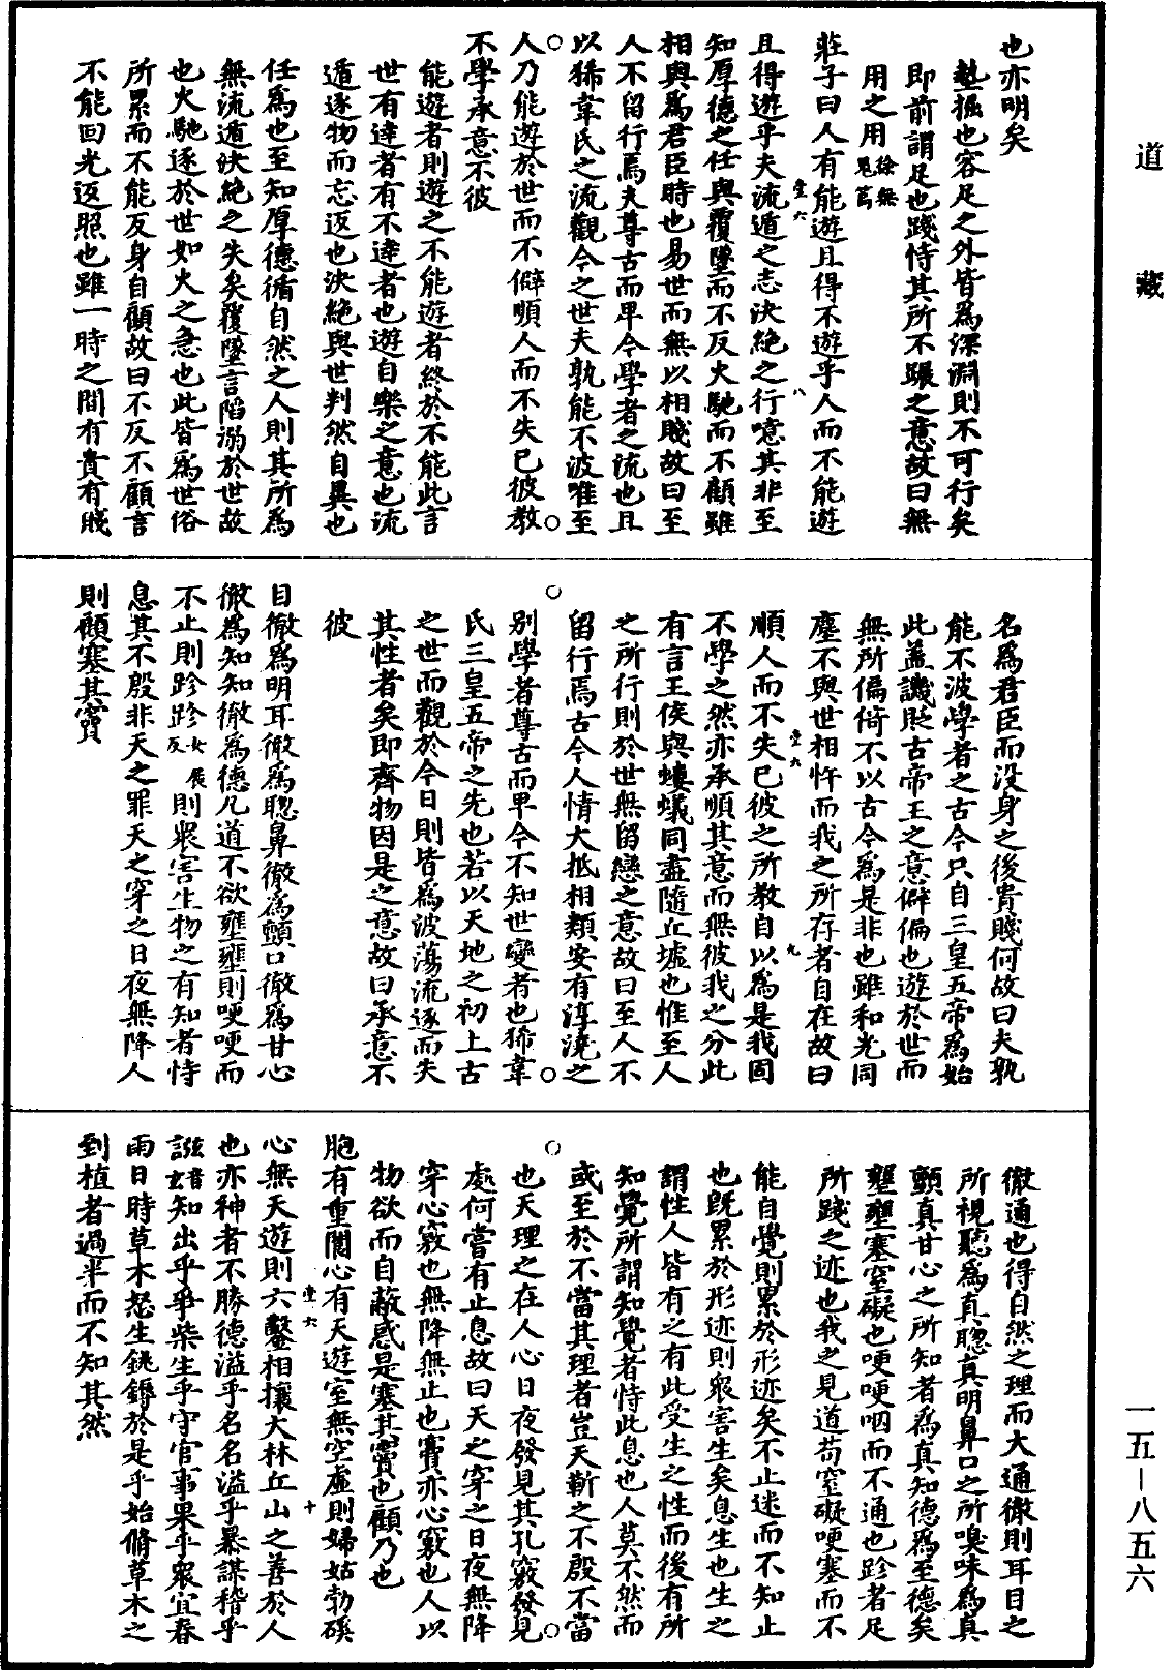 道藏
也亦明矣
墊掘也容足之外皆為深淵則不可行矣
即前謂足也踐恃其所不蹍之意故曰無
用之用徐無鬼篇
莊子曰人有能遊且得不遊乎人而不能遊
且得遊乎夫流遁之志決絕之行噫其非至
知厚德之任與覆墜而不反火馳而不顧雖
相與為君臣時也易世而無以相賤故曰至
人不留行焉夫尊古而卑今學者之流也且
以狶韋氏之流觀今之世夫孰能不波唯至
人乃能遊於世而不僻順人而不失己彼教
不學承意不彼
能遊者則遊之不能遊者終於不能此言
世有達者有不達者也遊自樂之意也流
遁逐物而忘返也決絕與世判然自異也
任為也至知厚德循自然之人則其所為
無流遁決絕之失矣覆墜言陷溺於世故
也火馳逐於世如火之急也此皆為世俗
所累而不能反身自顧故曰不反不顧言
不能回光返照也雖一時之間有貴有賤
名為君臣而沒身之後貴賤何故曰夫孰
能不波學者之古今只自三皇五帝為始
此蓋譏貶古帝王之意僻偏也遊於世而
無所偏倚不以古今為是非也雖和光同
塵不與世相忤而我之所存者自在故曰
順人而不失己彼之所教自以為是我固
不學之然亦承順其意而無彼我之分此
有言王侯與螻蟻同盡隨丘墟也惟至人
之所行則於世無留戀之意故曰至人不
留行焉古今人情大抵相類安有淳澆之
別學者尊古而卑今不知世變者也狶韋
氏三皇五帝之先也若以天地之初上古
之世而觀於今日則皆為波蕩流逐而失
其性者矣即齊物因是之意故曰承意不
彼
目徹為明耳徹為聰鼻徹為顫口徹為甘心
徹為知知徹為德凡道不欲壅壅則哽哽而
不止則跈跈女展反則眾害生物之有知者恃
息其不殷非天之罪天之穿之日夜無降人
則顧塞其竇
徹通也得自然之理而大通徹則耳目之
所視聽為真聰真明鼻口之所嗅味為真
顫真甘心之所知者為真知德為至德矣
壅壅塞窒礙也哽哽咽而不通也跈者足
所踐之迹也我之見道苟窒礙哽塞而不
能自覺則累於形迹矣不止迷而不知止
也既累於形迹則眾害生矣息生也生之
謂性人皆有之有此受生之性而後有所
知覺所謂知覺者恃此息也人莫不然而
或至於不當其理者豈天靳之不殷不當
也天理之在人心日夜發見其孔竅發見
處何嘗有止息故曰天之穿之日夜無降
穿心竅也無降無止也竇亦心竅也人以
物欲而自蔽惑是塞其竇也顧乃也
胞有重閬心有天遊室無空虛則婦姑勃磎
心無天遊則六鑿相攘大林丘山之善於人
也亦神者不勝德溢乎名名溢乎暴謀稽乎
誸音玄知出乎爭柴生乎守官事果乎眾宜春
雨日時草木怒生銚鎒於是乎始脩草木之
到植者過半而不知其然
一五—八五六